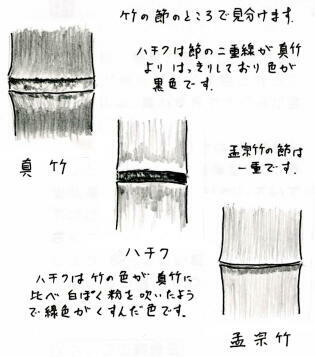 竹の節のところで見分けます.
ハチクは節の二重線が真竹
より はっきりしており 色が
黒色です.
真竹
孟宗竹の節は
一重です.
ハチク
ハチクは 竹の色が 真竹に
比べ 白ぽく 粉を吹いたよう
で 緑色が くすんだ 色です.
孟宗竹